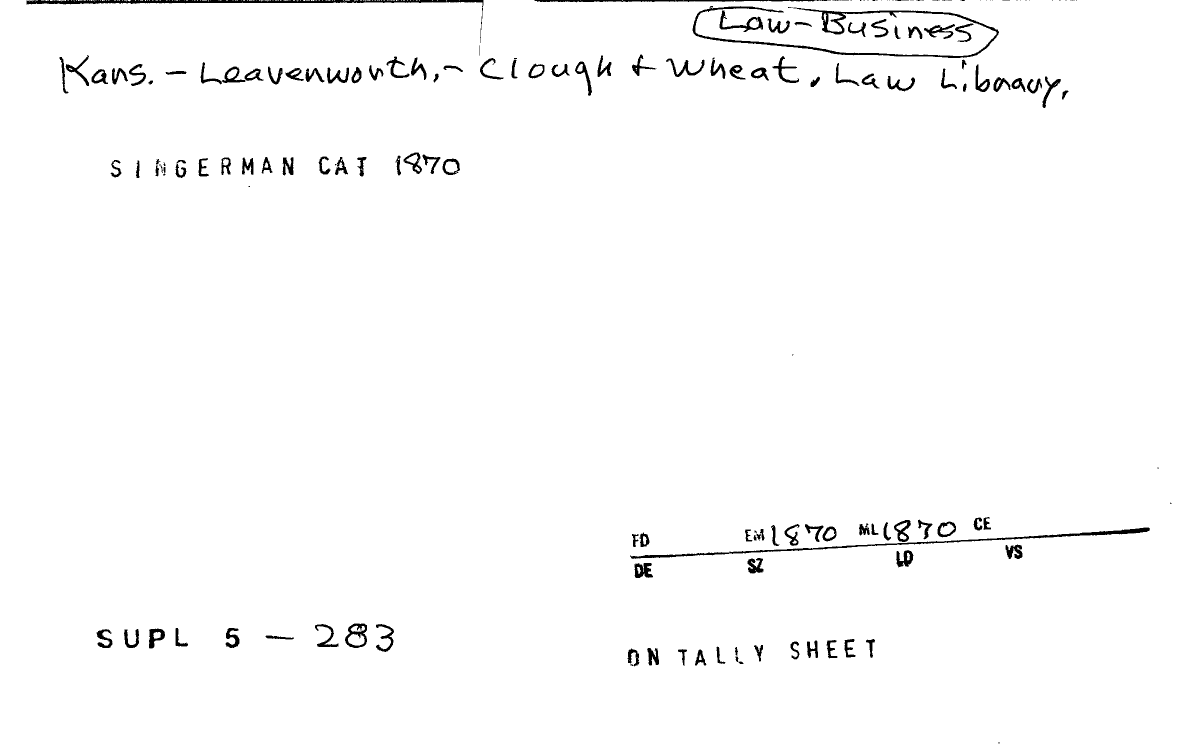 Law-Business
Kans. - Leavenworth, - Clough + Wheat, Law Library,
SINGERMAN CAT 1870
FD EM 1870 ML 1870 CE
DE SZ LD VS
SUPL 5 - 283
ON TALLY SHEET